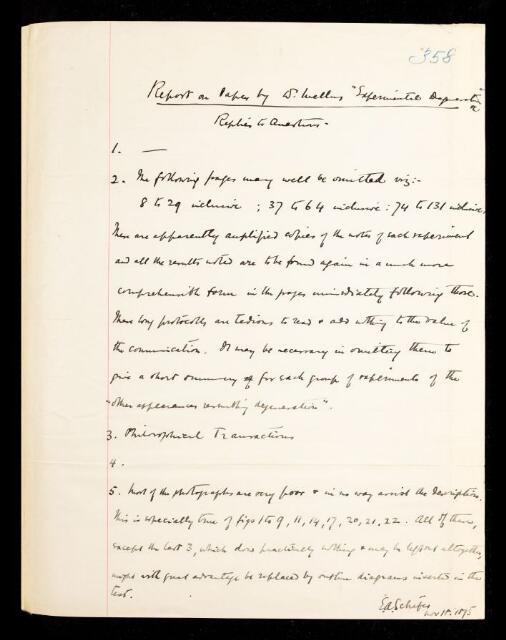 358
Report on Paper by Dr. Mellus "Experimental Degeneration"
Replies to Questions -
1. —
2. The following pages may well be omitted viz:-
8 to 29 inclusive ; 37 to 64 inclusive : 74 to 131 inclusive.
These are apparently amplified copies of the notes of each experiment
and all the results noted are to be found again in a much more
comprehensible form in the pages immediately following those.
These long protocolls are tedious to read & add nothing to the value of
the communication. It may be necessary in omitting them to
give a short summary of for each group of experiments of the
"other appearances resembling degeneration".
3. Philosophical Transactions
4.
5. Most of the photographs are very poor & in no way assist the description.
This is especially true of figs 1 to 9, 11, 14, 17, 20, 21, 22. All of these,
except the last 3, which show practically nothing & may be left out altogether,
might with great advantage be replaced by outline diagrams inserted in the
text.
E.A. Schäfer
Nov 18. 1895